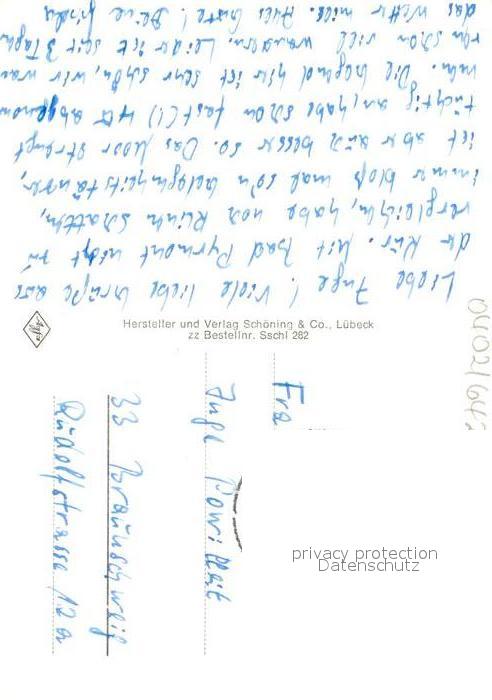 Liebe Inge! Viele liebe Grüße aus
der Kur. Mit Bad Pyrmont nicht zu
vergleichen, habe noch keinen Schatten,
immer bloß mal so'n Gelegenheitstänzer,
ist aber auch besser so. Das Moor strengt
tüchtig an, habe schon fast (!) 4 abgenom
men. Die Gegend hier ist sehr schön, wir wan
ern schon viel wandern. Leider ist seit 3 Tagen
das Wetter mies. Alles Gute! Deine
Agfa
Hersteller und Verlag Schöning & Co., Lübeck
zz Bestellnr. Sschl 282
Fra
Inge
33 Braunschweig
Rudolfstrasse 12a
privacy protection
Datenschutz